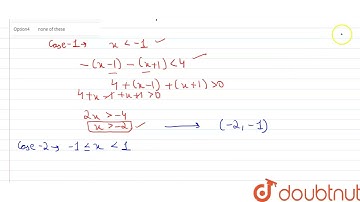 Option4 none of these
Case-1→ x < -1 ✓
-(x-1) -(x+1) < 4 ✓
4 + (x-1) + (x+1) > 0
4 + x - 1 + x + 1 > 0
2x > -4
x > -2 ✓ → (-2, -1)
Case-2→ -1 ≤ x < 1
doubtnut